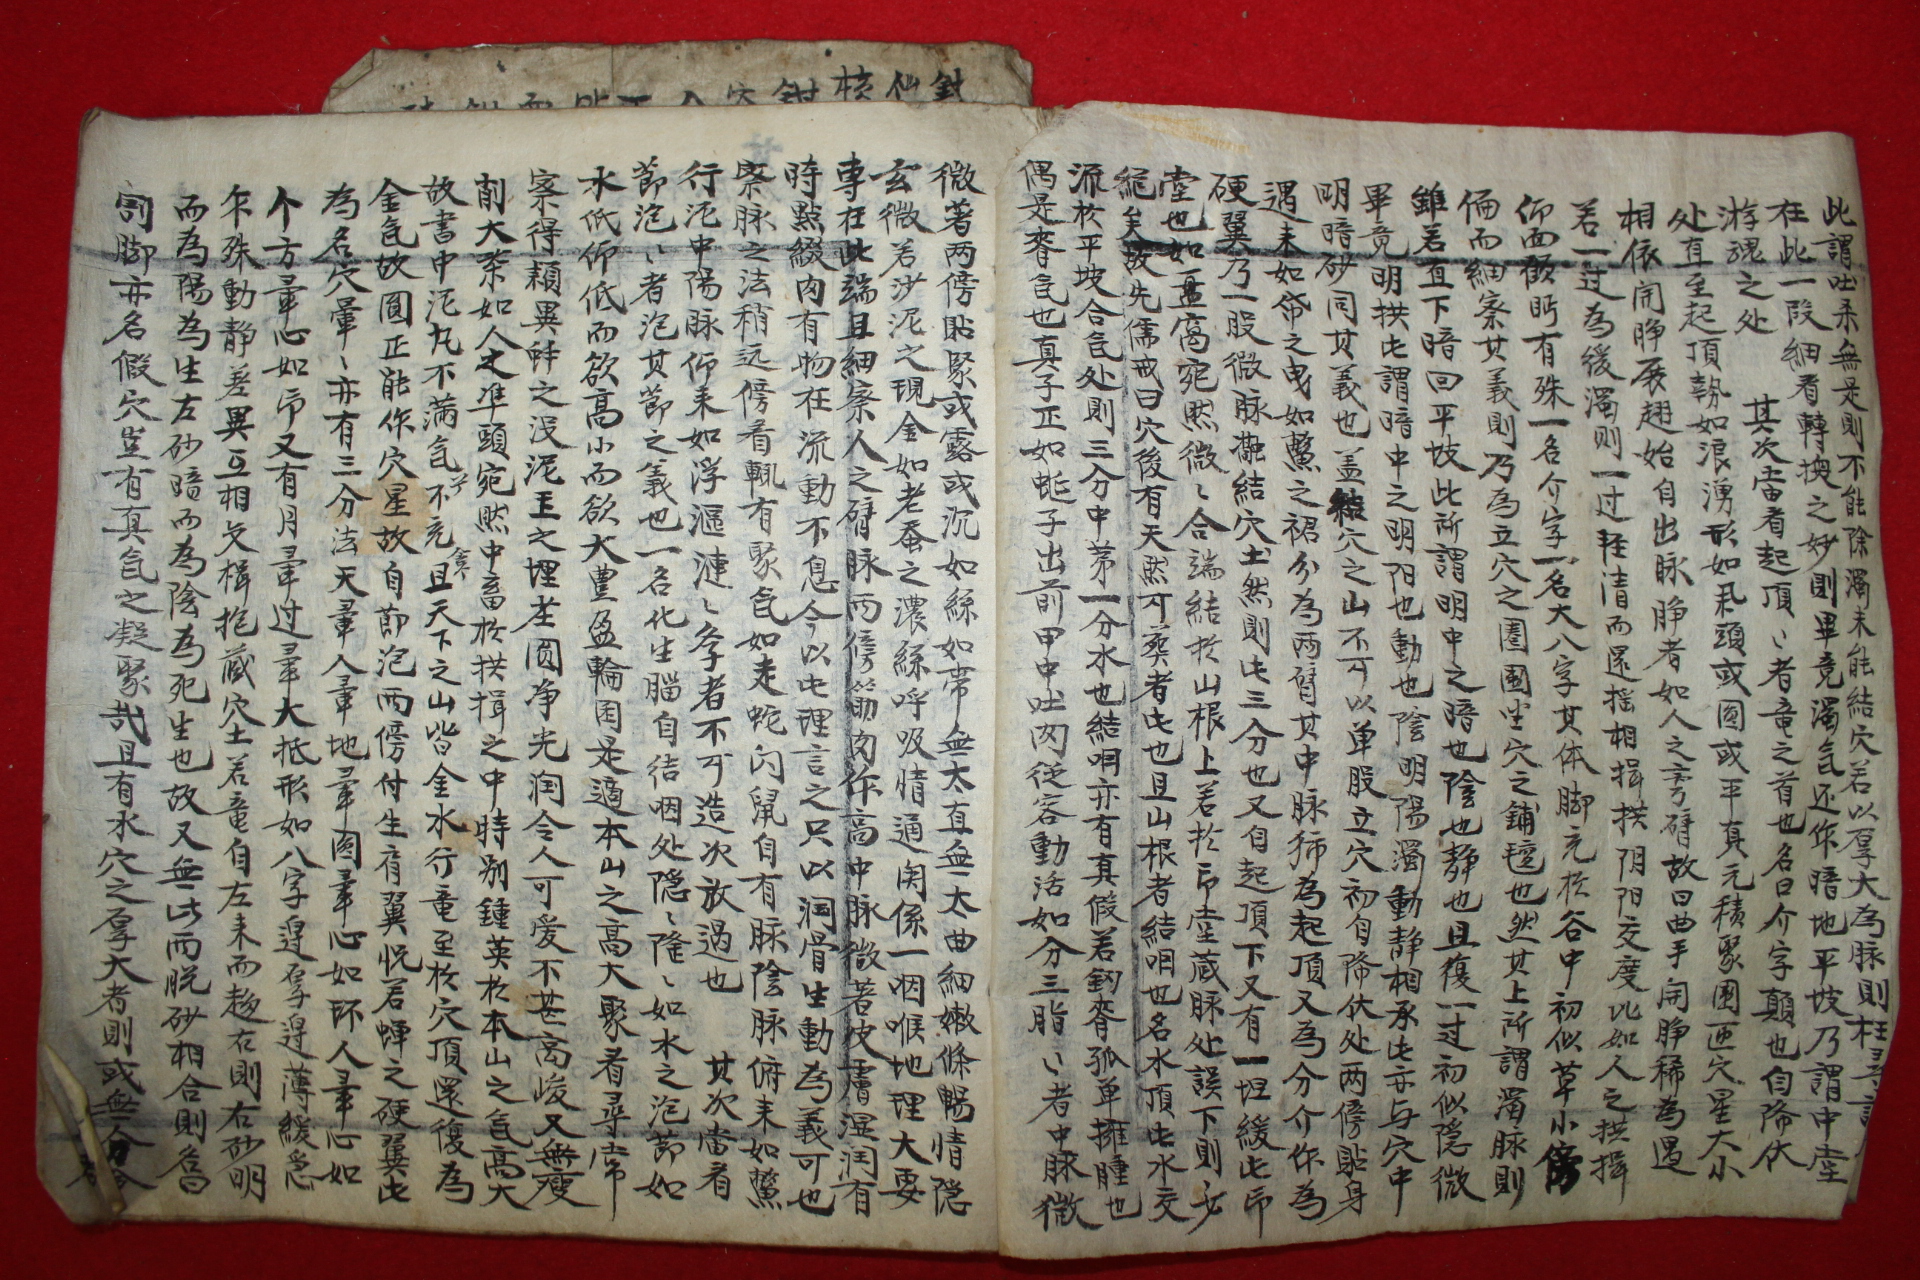 此謂吐柔無是則不能除濁未能結穴若以厚大為脉則枉
在此一段細看轉換之妙則畢竟濁气还作暗地平坡乃謂中堂
游魂之处 其次當看起頂ヽ者竜之首也名曰介字顛也自降伏
处直至起頂勢如浪湧形如瓜頭或圓或平真元積聚團匝穴星大小
相依開睁展翅始自出脉睁者如人之旁臂故曰曲手開睁稀為過
若一过為緩濁則一过輊清而還摇相揖拱阴阳交度比如人之拱揖
仰面顧眄有殊一名介字一名大八字其体脚充於谷中初似草小傍
偏而細察其義則乃為立穴之圍圍坐穴之鋪氊也然其上所謂濁脉則
雖若直下暗回平坡此所謂明中之暗也陰也静也且復一过初似隠微
畢竟明拱此謂暗中之明阳也動也陰明陽濁動静相承此亦与穴中
明暗砂同其義也盖結穴之山不可以单股立穴初自降伏处两傍貼身
過未如帝之曳如鱉之裙分為两臂其中脉狮為起頂又為分介作為
硬翼乃一股微脉撒結穴土然則此三分也又自起頂下又有一坦緩此帀
堂也如盖窩宛然微ヽ合端結於山根上若於帀堂蔵脉处誤下則多
絕矣故先儒戒曰穴後有天然可葬者此也且山根者結咽也名水頂此水交
流於平坡合气处則三分中苐一分水也結咽亦有真假若釼脊孤单擁腫也
偶是脊气也真子正如蚯子出前甲中吐两従容動活如分三脂ヽ者中脉微
微著两傍貼聚或露或沉如絲如帯無太直無太曲細嫩條暢情隠
玄微若沙泥之現金如老蚕之濃絲呼吸情通関係一咽喉地理大要
專在此端且細察人之臂脉两傍筋肉作高中脉微著皮膚湿润有
時點綴肉有物在流動不息今以此理言之只以润骨生動為義可也
察脉之法稍远傍看輒有聚气如走蛇闪鼠自有脉陰脉俯来如鱉
行泥中陽脉仰来如浮漚漣ヽ务者不可造次放過也 其次當看
節泡ヽ者泡其節之義也一名化生腦自结咽处隠ヽ隆ヽ如水之泡節如
水低仰仰低而欲高小而欲大豊盈輪囷是適本山之高大聚看尋常
察得頼異蚌之没泥玉之埋土圓净光润令人可爱不甚高峻又無瘦
削大槩如人之準頭宛然中畜於拱揖之中時别鍾英於本山之气高大
故書中泥丸不满气不充且天下之山皆金水行竜至於穴頂還復為
金气故圓正能作穴星故自節泡两傍付生有翼恍若蟬之硬翼此
為名穴暈ヽ亦有三分法天暈人暈地暈圓暈心如环人暈心如
个方暈心如帀又有月暈过暈大抵形如八字逞厚逞薄緩急
乍殊動静差異互相交揖抱蔵穴土若竜自左来而趍右則右砂明
而為陽為生左砂暗而為陰為死生也故又無此而脱砂相合則名曰
割脚亦名假穴豈有真气之凝聚哉且有水穴之厚大者則或無分金